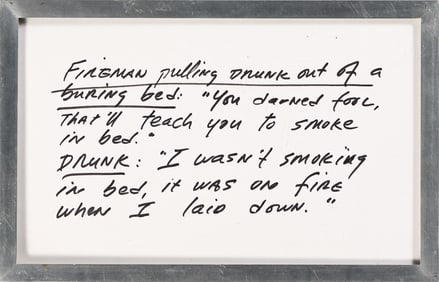 FIREMAN pulling DRUNK out of a
buring bed: "You darned fool,
THAT'll teach you to smoke
in bed."
DRUNK: "I wasn't smoking
in bed, it was on fire
when I laid down."